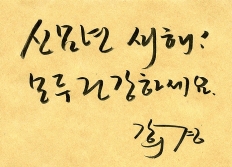 신묘년 새해!
모두 건강하세요.
희경